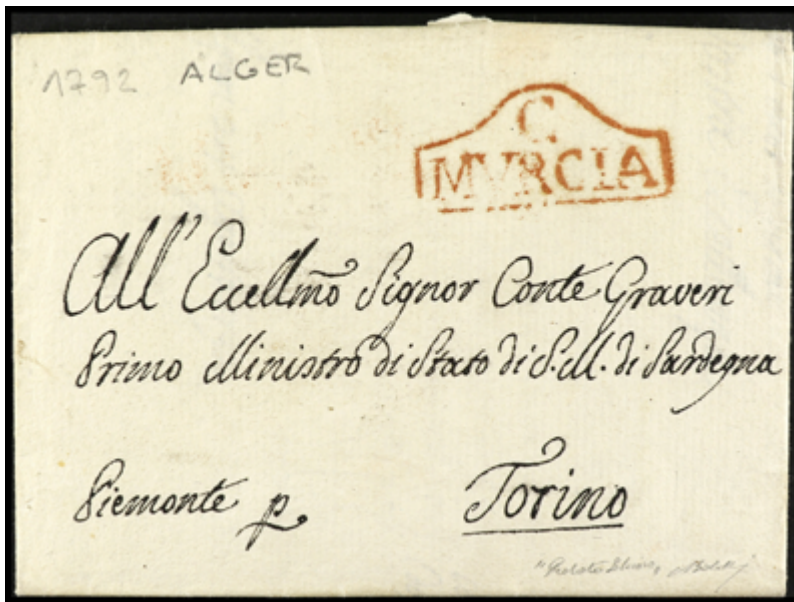 1792 ALGER
C.
MVRCIA
All' Eccellmõ Signor Conte Graveri
Primo Ministro di Stato di S. M. di Sardegna
Piemonte p.
Torino